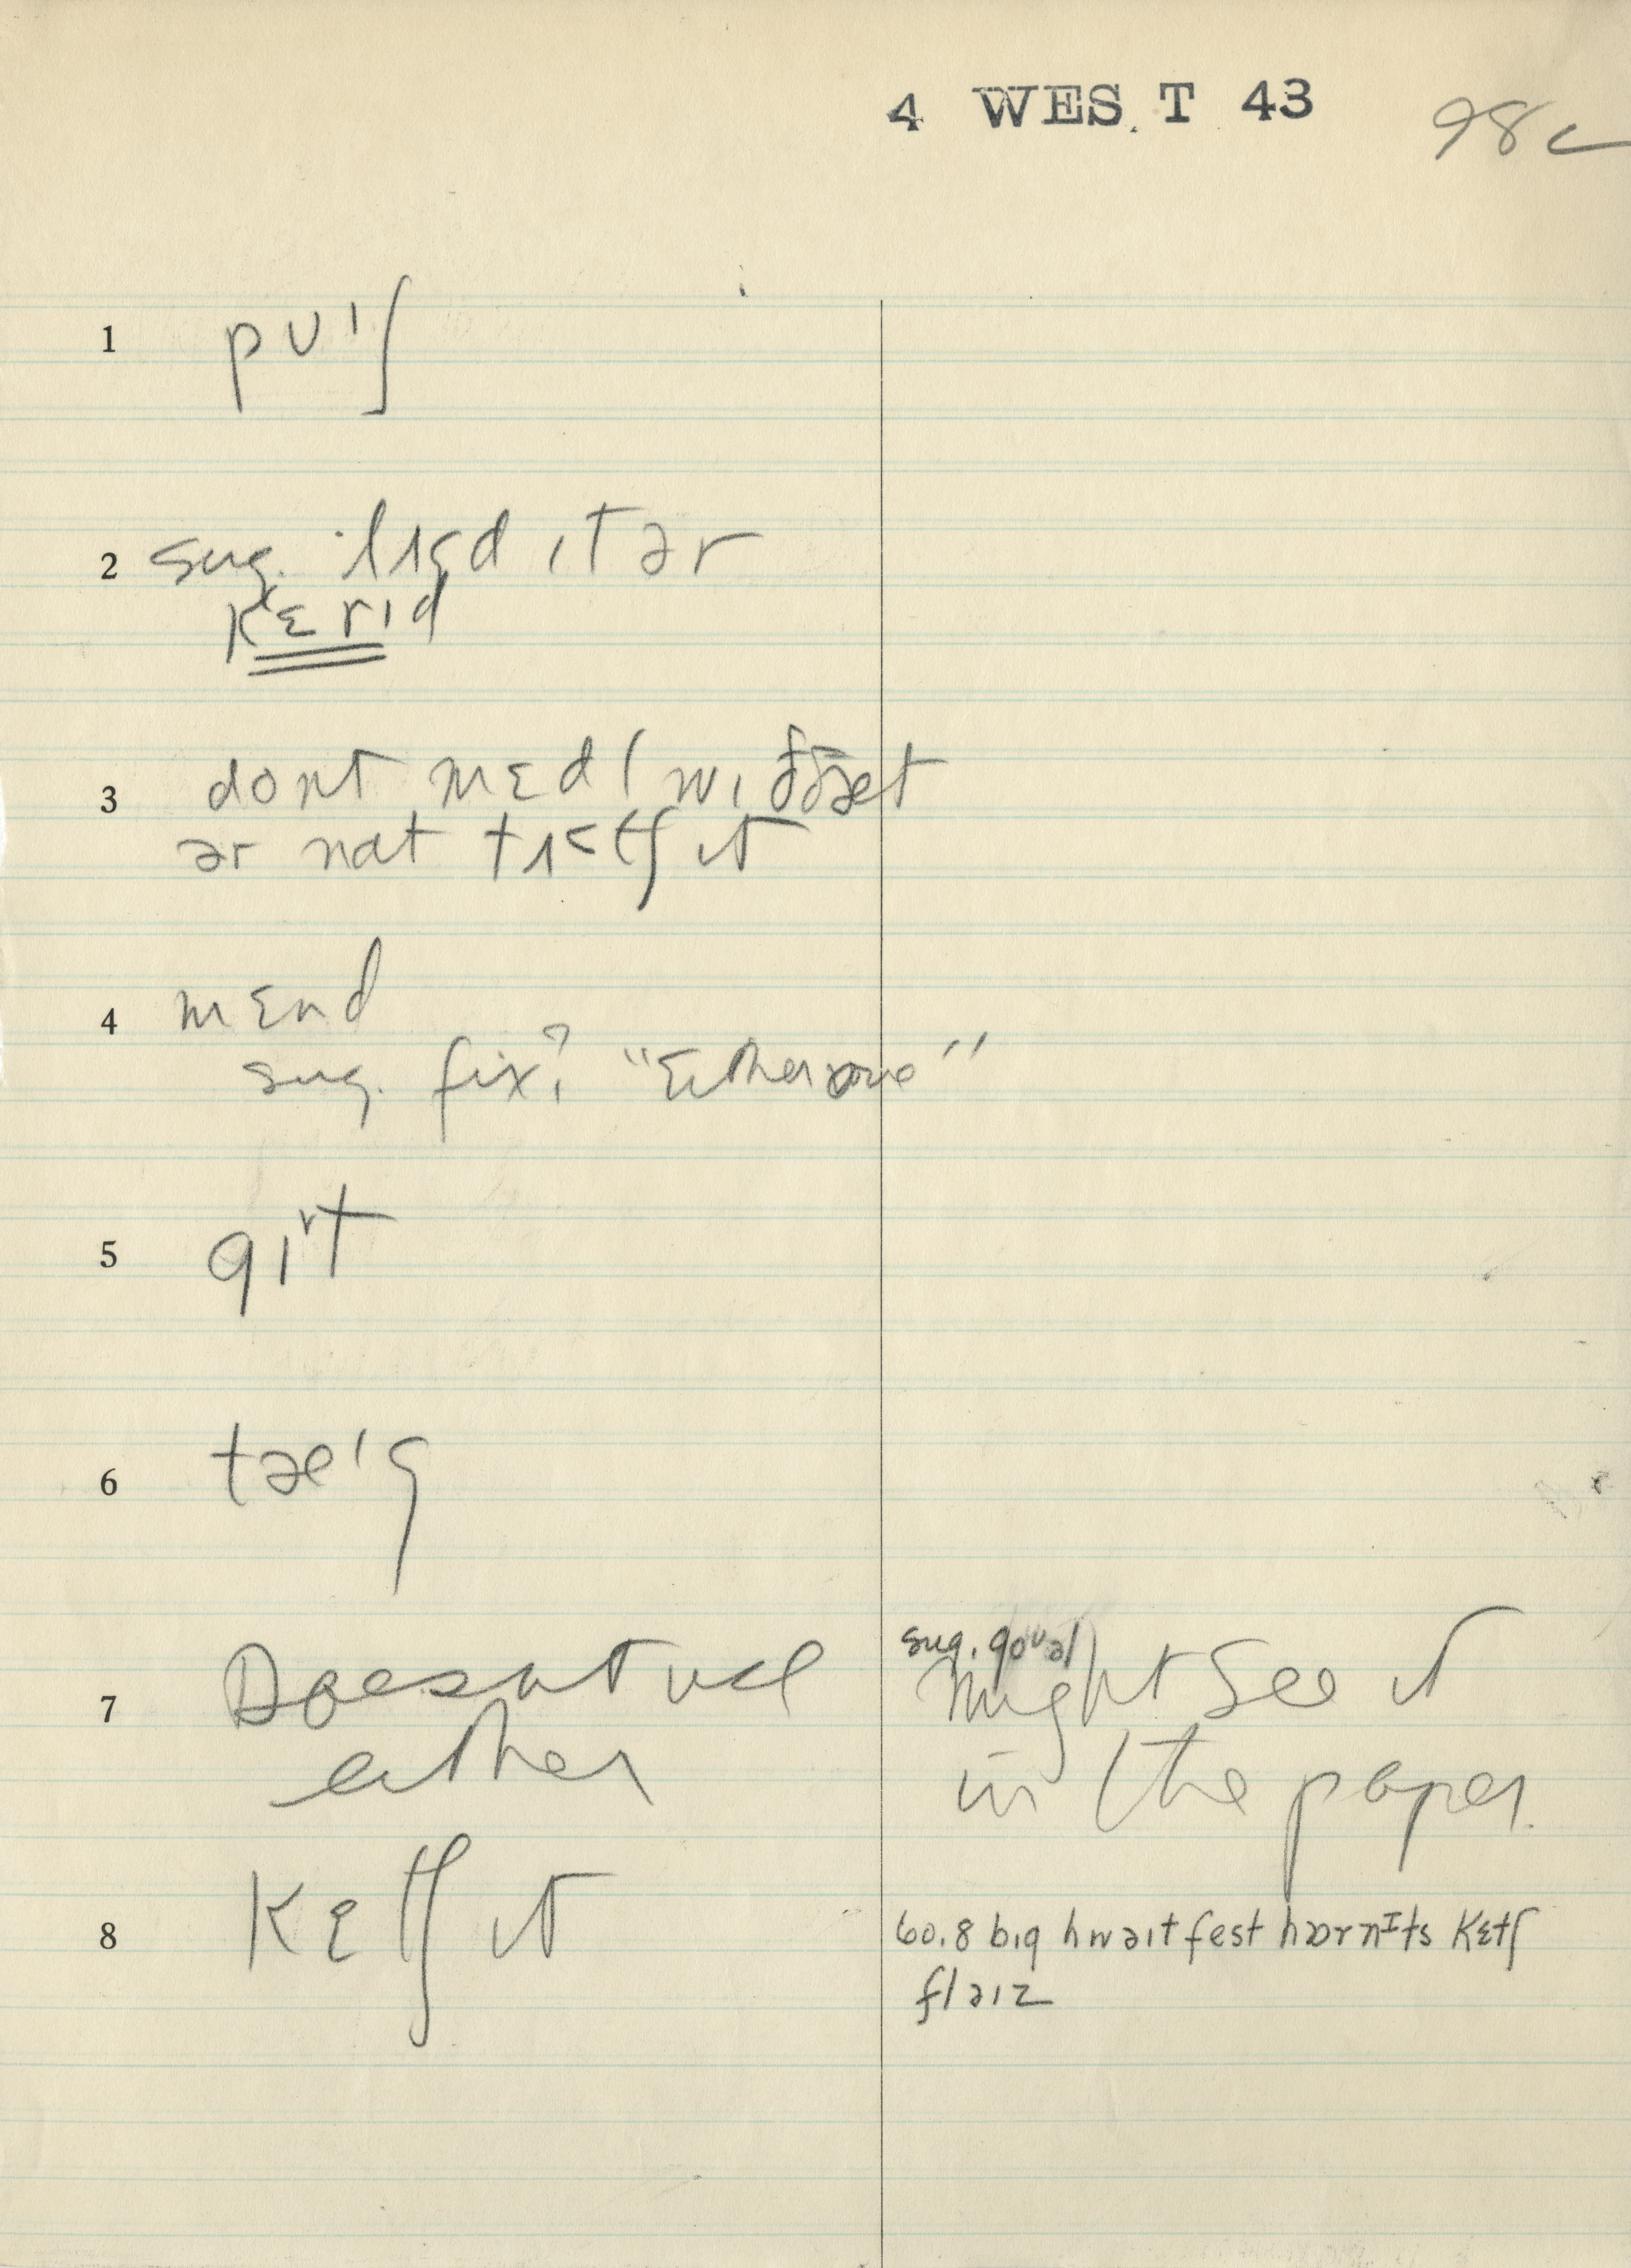 4 WES.T 43 98c
1 pʊˈʃ
2 sug. lɪʒd ɪt ər
kɛrɪd
3 dont mɛdl wɪ ððæt
ər nat tɪtʃ ɪt
4 mɛnd
sug. fix? "Either one"
5 gɪrt
6 tæ'g
7 Doesnt use sug. goᵘəl Might See it
either in the paper.
8 Kɛtʃ it 60.8 bɪg hwəɪt fest hɒrnɪts kɛtʃ
fləɪz